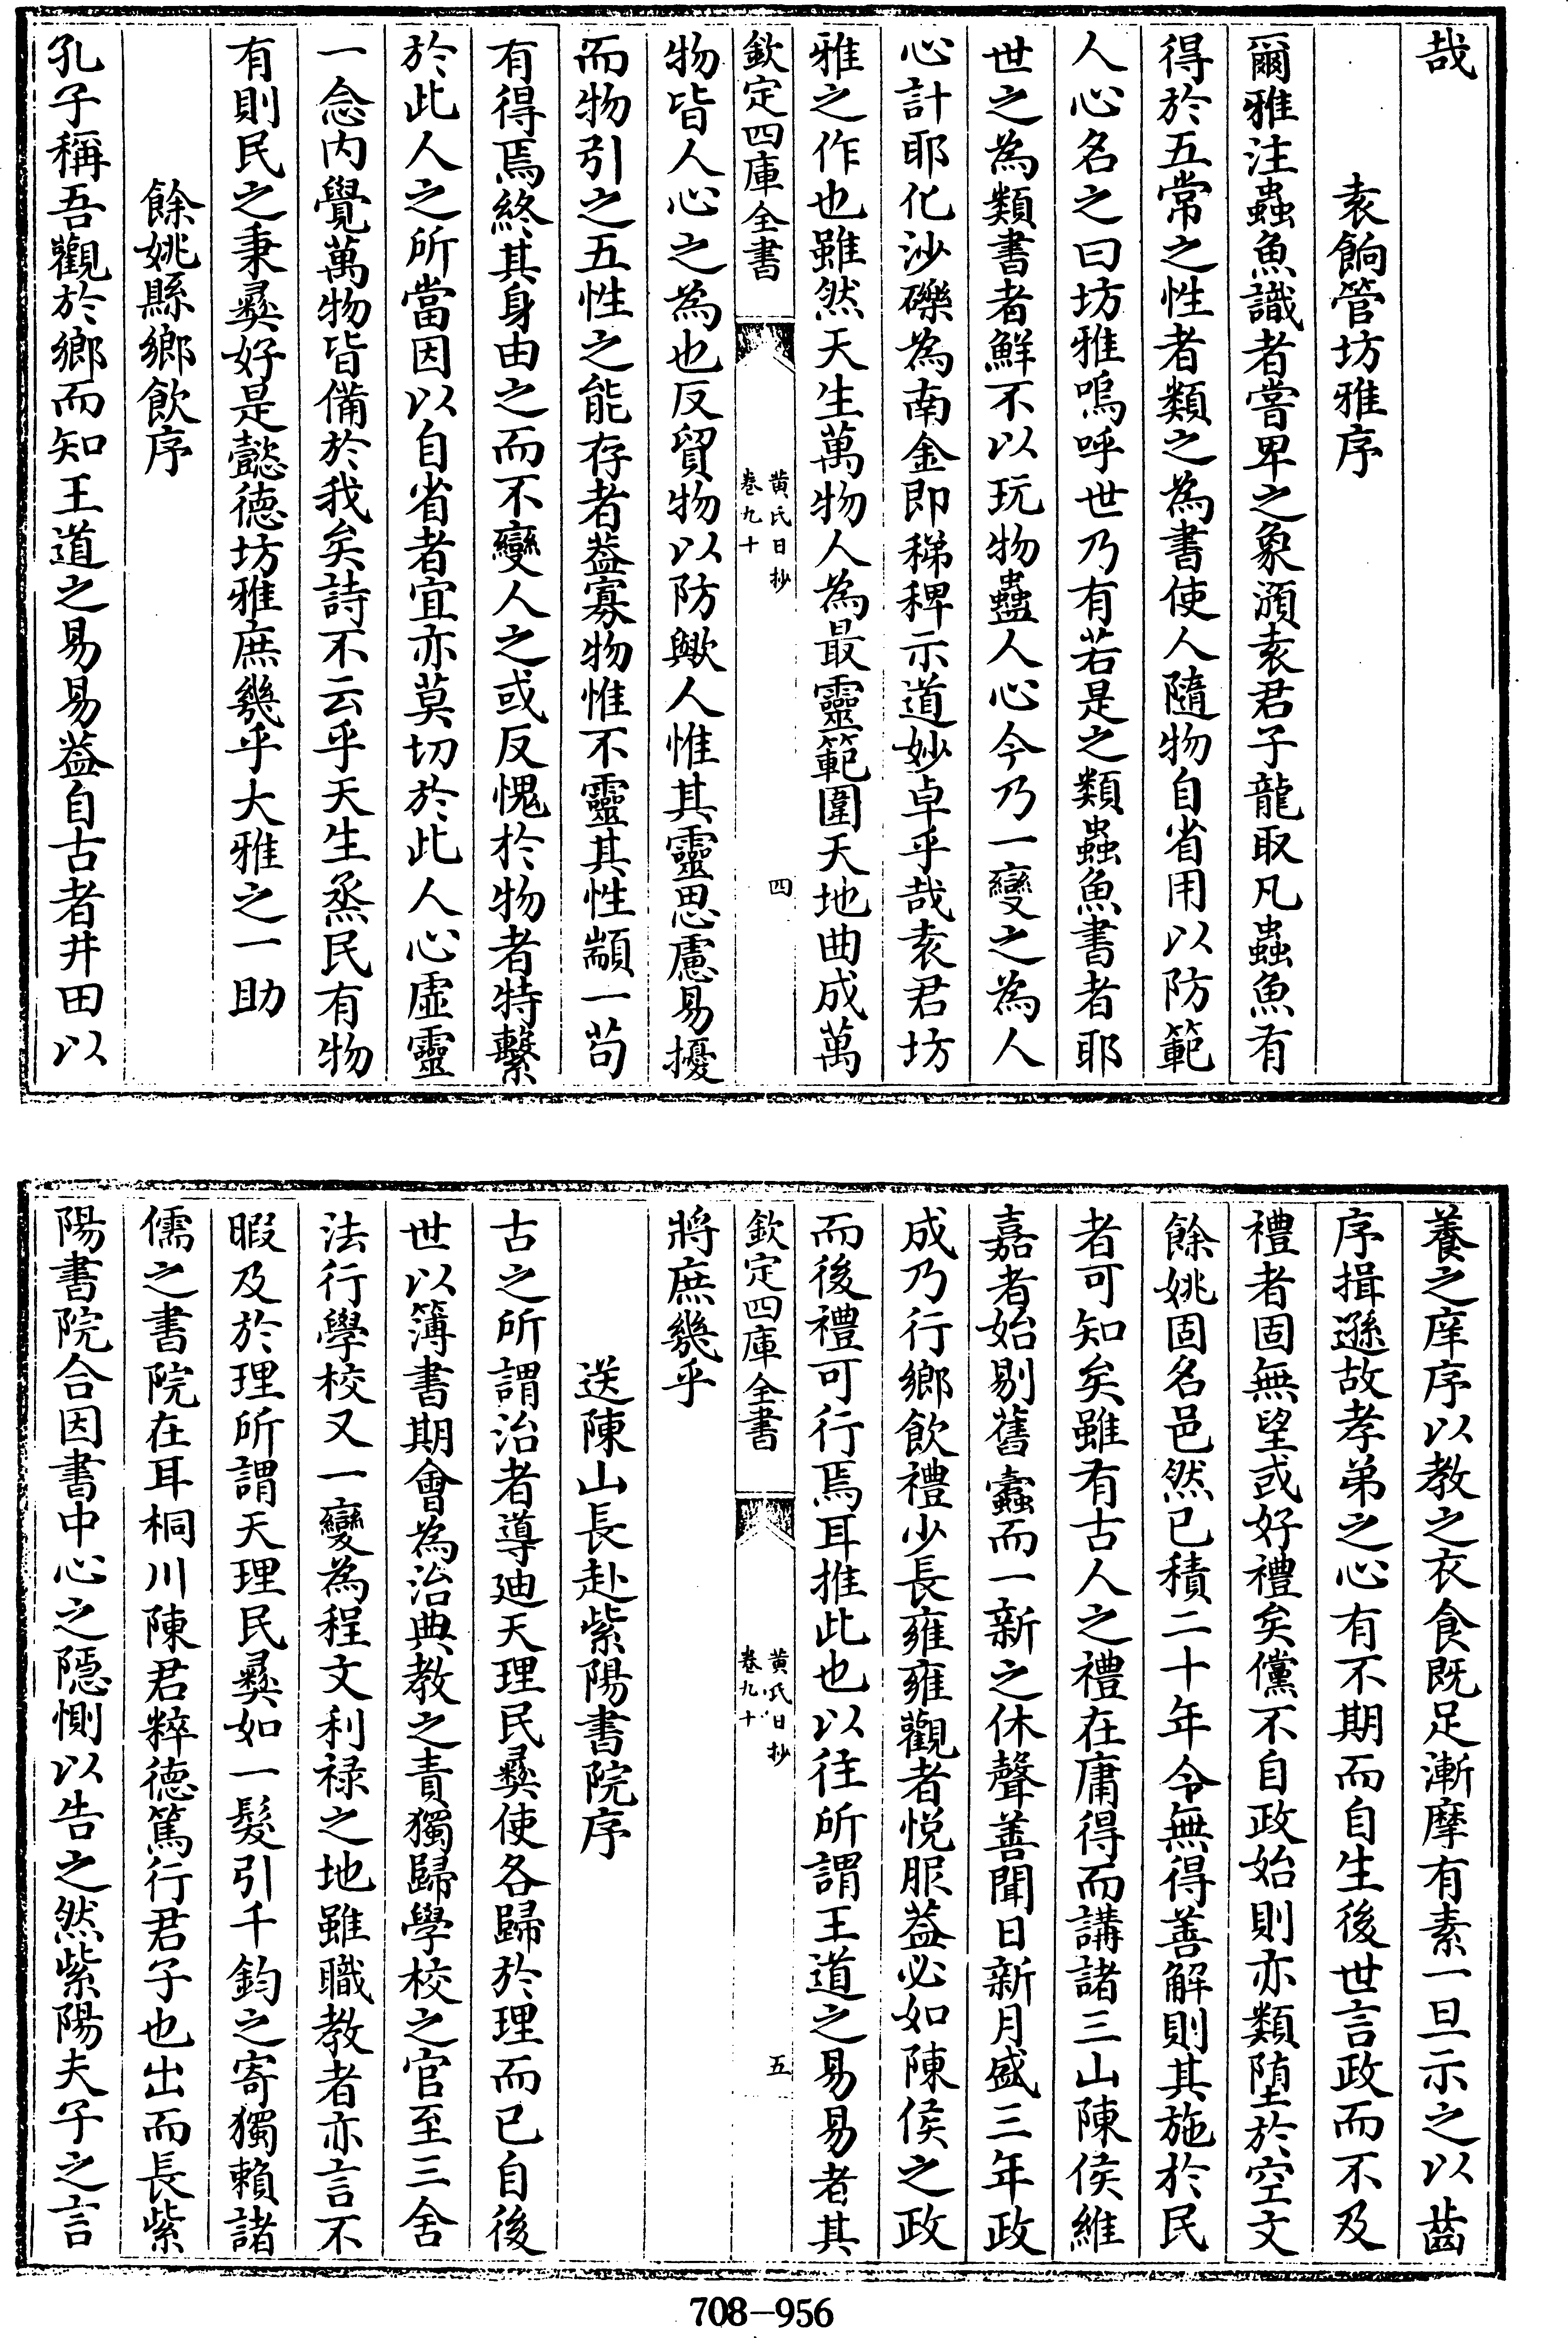 哉
袁餉管坊雅序
爾雅注蟲魚識者嘗卑之象瀕袁君子龍取凡蟲魚有
得於五常之性者類之為書使人隨物自省用以防範
人心名之曰坊雅嗚呼世乃有若是之類蟲魚書者耶
世之為類書者鮮不以玩物蠱人心今乃一變之為人
心計耶化沙礫為南金即稊稗示道妙卓乎哉袁君坊
雅之作也雖然天生萬物人為最靈範圍天地曲成萬
欽定四庫全書
黄氏日抄
卷九十
四
物皆人心之為也反貿物以防歟人惟其靈思慮易擾
而物引之五性之能存者葢寡物惟不靈其性顓一苟
有得焉終其身由之而不變人之或反愧於物者特繫
於此人之所當因以自省者宜亦莫切於此人心虛靈
一念内覺萬物皆備於我矣詩不云乎天生烝民有物
有則民之秉彛好是懿德坊雅庶幾乎大雅之一助
餘姚縣鄉飲序
孔子稱吾觀於鄉而知王道之易易葢自古者井田以
養之庠序以教之衣食既足漸摩有素一旦示之以齒
序揖遜故孝弟之心有不期而自生後世言政而不及
禮者固無望或好禮矣儻不自政始則亦類堕於空文
餘姚固名邑然已積二十年令無得善解則其施於民
者可知矣雖有古人之禮在庸得而講諸三山陳侯維
嘉者始剔舊蠹而一新之休聲善聞日新月盛三年政
成乃行鄉飲禮少長雍雍觀者悦服葢必如陳侯之政
而後禮可行焉耳推此也以往所謂王道之易易者其
欽定四庫全書
黄氏日抄
卷九十
五
將庶幾乎
送陳山長赴紫陽書院序
古之所謂治者導廸天理民彛使各歸於理而已自後
世以簿書期會為治典教之責獨歸學校之官至三舍
法行學校又一變為程文利禄之地雖職教者亦言不
暇及於理所謂天理民彛如一髮引千鈞之寄獨賴諸
儒之書院在耳桐川陳君粹德篤行君子也出而長紫
陽書院合因書中心之隱惻以告之然紫陽夫子之言
708-956